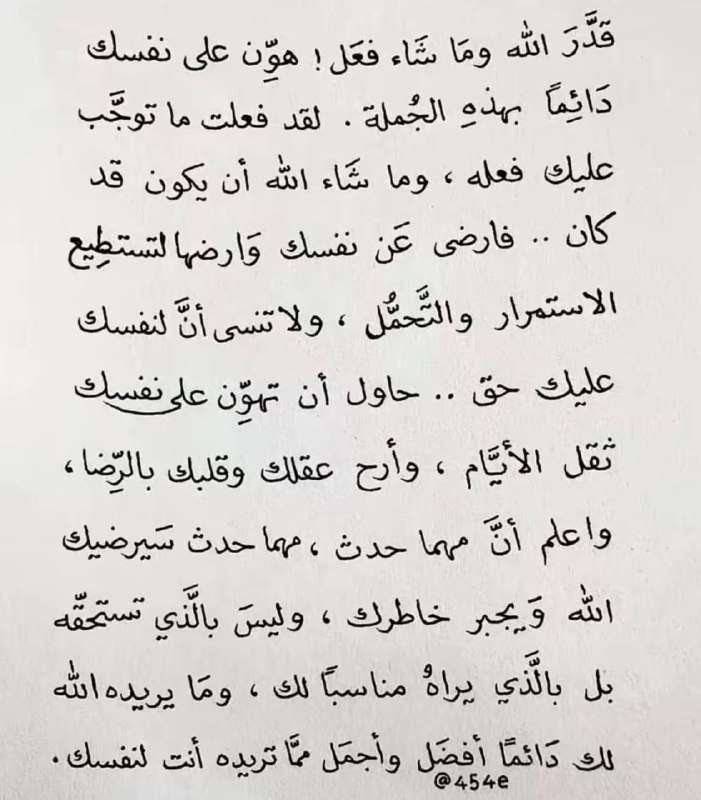 قَدَّرَ الله ومَا شَاء فعَل! هوِّن على نفسك
دَائِماً بهذهِ الجُملة . لقد فعلت ما توجَّب
عليك فعله ، وما شَاء الله أن يكون قد
كان .. فارضى عَن نفسك وَارضها لتستطِيع
الاستمرار والتَّحمُّل ، ولا تنسى أنَّ لنفسك
عليك حق .. حاول أن تهوِّن على نفسك
ثقل الأيَّام ، وأرح عقلك وقلبك بالرِّضا ،
واعلم أنَّ مهما حدث ، مهما حدث سَيرضيك
الله وَيجبر خاطرك ، وليسَ بالَّذي تستحقّه
بل بالَّذي يراهُ مناسباً لك ، ومَا يريده الله
لك دَائماً أفضَل وأجمَل ممَّا تريده أنت لنفسك .
@454e